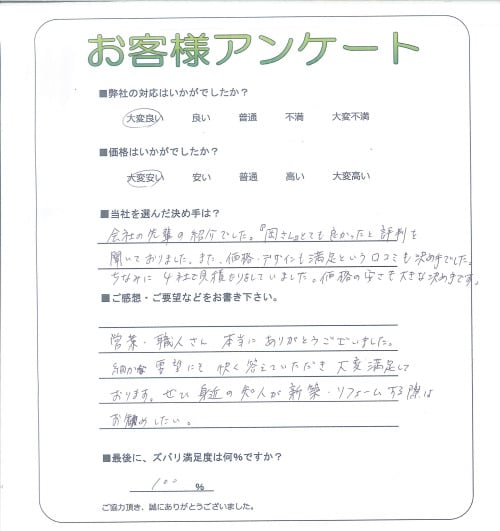 お客様アンケート
■弊社の対応はいかがでしたか?
大変良い 良い 普通 不満 大変不満
■価格はいかがでしたか?
大変安い 安い 普通 高い 大変高い
■当社を選んだ決め手は?
会社の先輩の紹介でした。『岡さん』とても良かったと評判を
聞いておりました。また、価格・デザインも満足という口コミも決め手でした。
ちなみに4社で見積かりをしていました。価格の安さも大きな決め手です。
■ご感想・ご要望などをお書き下さい。
営業・職人さん 本当にありがとうございました。
細かな要望にも快く答えていただき大変満足して
おります。ぜひ身近の知人が新築・リフォームする際は
お勧めしたい。
■最後に、ズバリ満足度は何%ですか?
100 %
ご協力頂き、誠にありがとうございました。